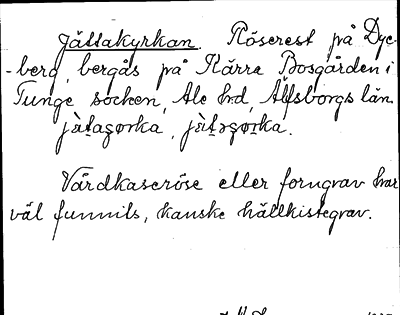 Jättakyrkan. Röserest på Dye-
-berg, bergås på Kärra Bosgården i
Tunge socken, Ale hd, Älfsborgs län.
jàtagørka, jàtəgørka.
Vårdkaseröse eller forngrav har
väl funnits, kanske hällkistegrav.